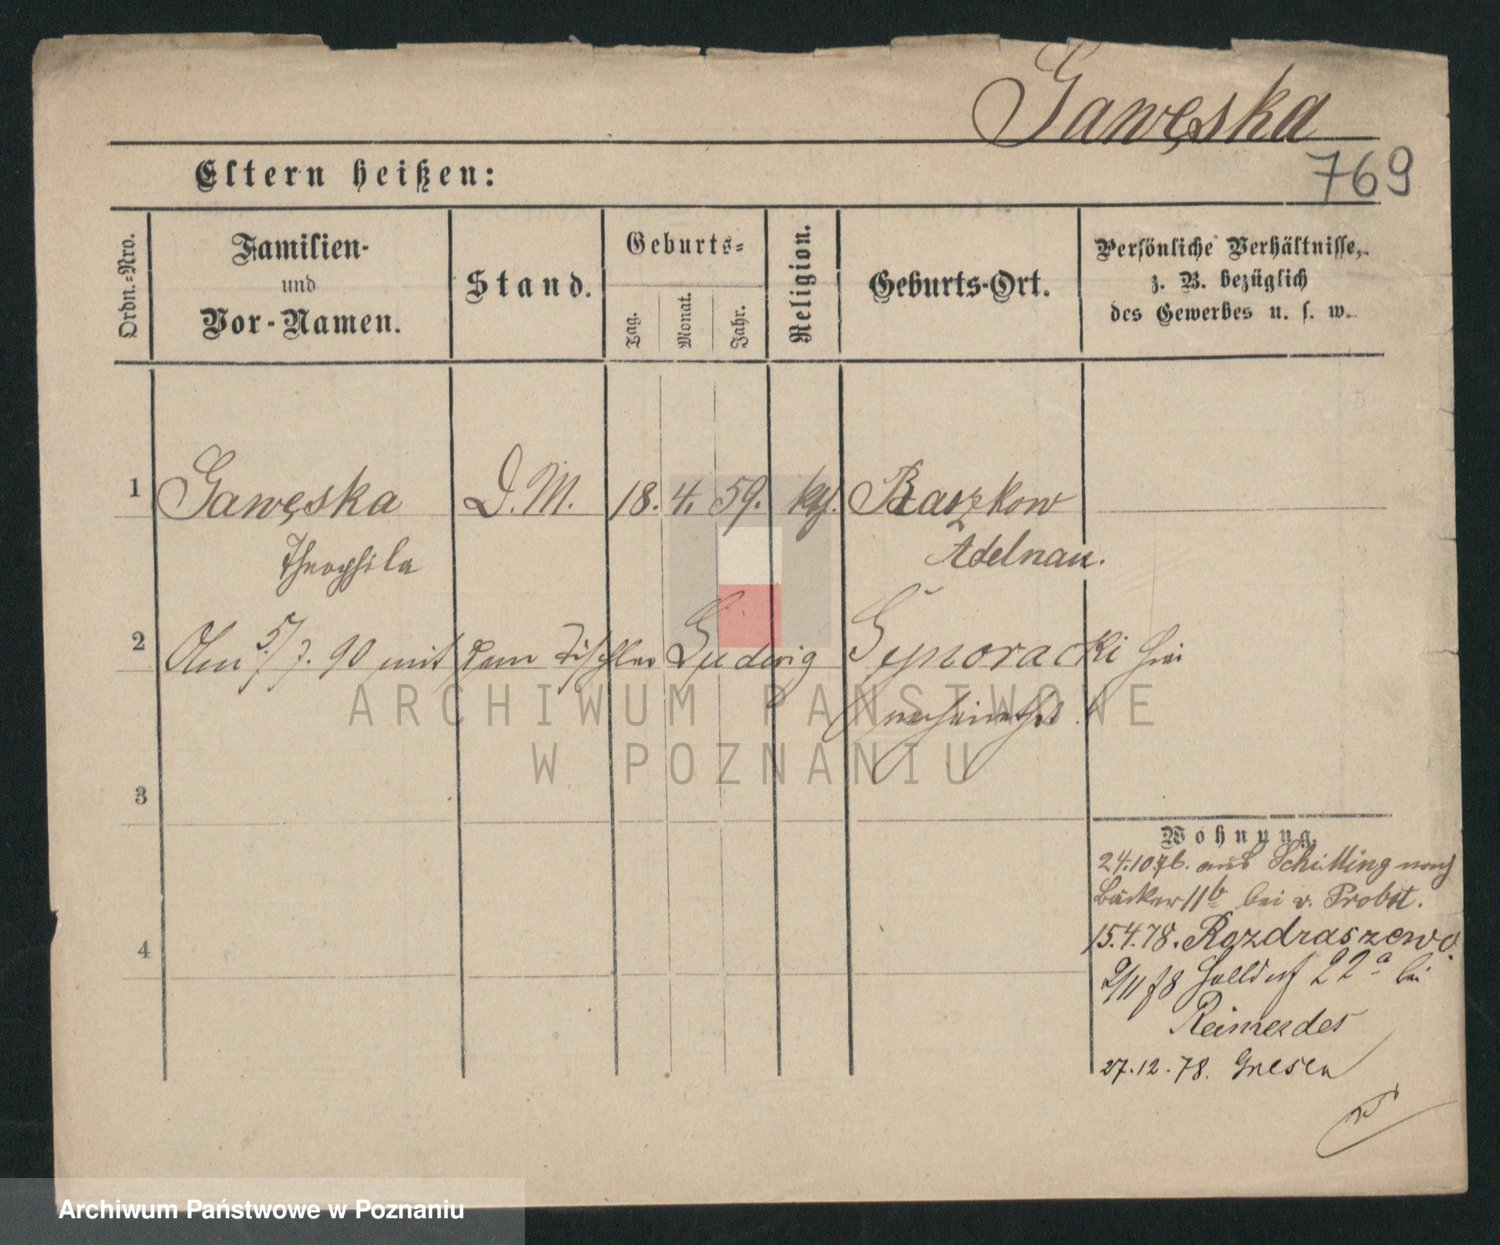 Gawęska
769
Eltern heißen:
Ordn.-Nro.
Familien-
und
Vor-Namen.
Stand.
Geburts-
Tag.
Monat.
Jahr.
Religion.
Geburts-Ort.
Persönliche Verhältnisse,
z. B. bezüglich
des Gewerbes u. s. w.
1 Gawęska D. M. 18. 4. 59. kth. Raszkow
Theophila Adelnau.
2 Am 5/7. 90 mit dem Tischler Ludwig Synoracki hier
verheirathet.
3
Wohnung.
24.10.76. aus Schilling nach
Bäcker 11b bei v. Probst.
4
15.4.78. Rozdraszewo.
2/11 78 Halldorf 22a bei
Reimerdes
27.12.78. Gnesen
ARCHIWUM PAŃSTWOWE
W POZNANIU
Archiwum Państwowe w Poznaniu